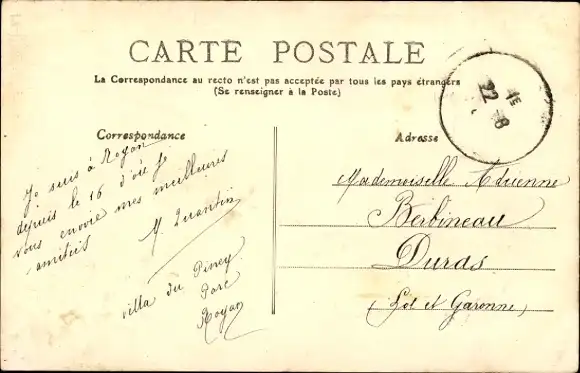 CARTE POSTALE
La Correspondance au recto n'est pas acceptée par tous les pays étrangers
(Se renseigner à la Poste)
Correspondance
Je suis à Royan
depuis le 16 d'où je
vous envoie mes meilleures
amitiés
M. Quantin
villa du Piney
Parc
Royan
Adresse
Mademoiselle Adrienne
Berbineau
Duras
(Lot et Garonne)
22 8